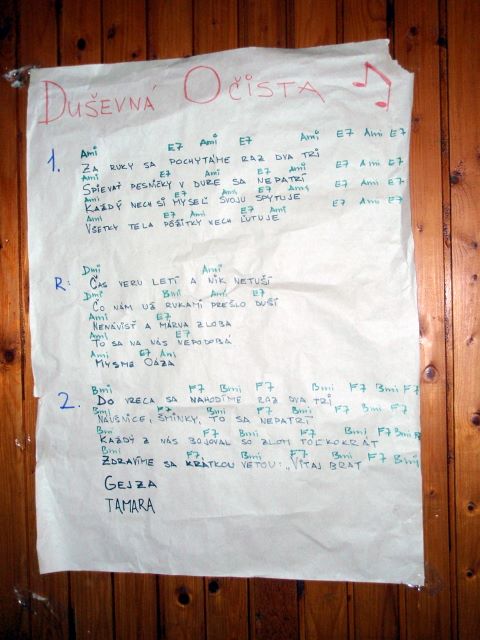 DUŠEVNÁ OČISTA
Ami E7 Ami E7 Ami E7 Ami E7
1. ZA RUKY SA POCHYTÁME RAZ DVA TRI
Ami E7 Ami E7 Ami E7 Ami E7
SPIEVAŤ PESNIČKY V DUŠE SA NEPATRÍ
Ami E7 Ami E7 Ami E7 Ami E7
KAŽDÝ NECH SI MYSEĽ SVOJU SPYTUJE
Ami E7 Ami E7 Ami E7 Ami E7
VŠETKY TELA PÔŽITKY NECH ĽUTUJE
Dmi Ami
R: ČAS VERU LETÍ A NIK NETUŠÍ
Dmi Bmi Ami E7
ČO NÁM UŽ RUKAMI PREŠLO DUŠÍ
Ami E7
NENÁVISŤ A MARVA ZLOBA
Ami E7
TO SA NA NÁS NEPODOBÁ
Ami E7 Ami
MYSME OÁZA
Bmi F7 Bmi F7 Bmi F7 Bmi F7
2. DO VRECA SA NAHODÍME RAZ DVA TRI
Bmi F7 Bmi F7 Bmi F7 Bmi F7
NÁUŠNICE, ŠMINKY, TO SA NEPATRÍ
Bmi F7 Bmi F7 Bmi F7 Bmi
KAŽDÝ Z NÁS BOJOVAL SO ZLOM TOĽKOKRÁT
Bmi F7 Bmi F7 Bmi F7 Bmi
ZDRAVÍME SA KRÁTKOU VETOU: „VITAJ BRAT
GEJZA
TAMARA